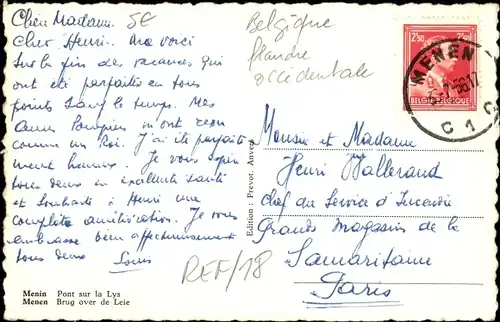 Chere Madame 5E
Cher Henri. Me voici
sur la fin des vacances qui
ont été parfaites en tous
points sauf le temps. Mes
amis Pompiers m'ont reçu
comme un Roi. J'ai été parfaite
ment heureux. Je vous espère
tous deux en excellente santé
et souhaite à Henri une
complète amélioration. Je vous
embrasse bien affectueusement
tous deux
Louis
Belgique
flandre
occidentale
2F50 2F50
BELGIE-BELGIQUE
MENEN
C 1 C
Monsieur et Madame
Henri Vallerand
Chef du Service d'Incendie
Grands Magasins de la
Samaritaine
Paris
Edition: Prevot, Anvers
REF/18
Menin Pont sur la Lys
Menen Brug over de Leie